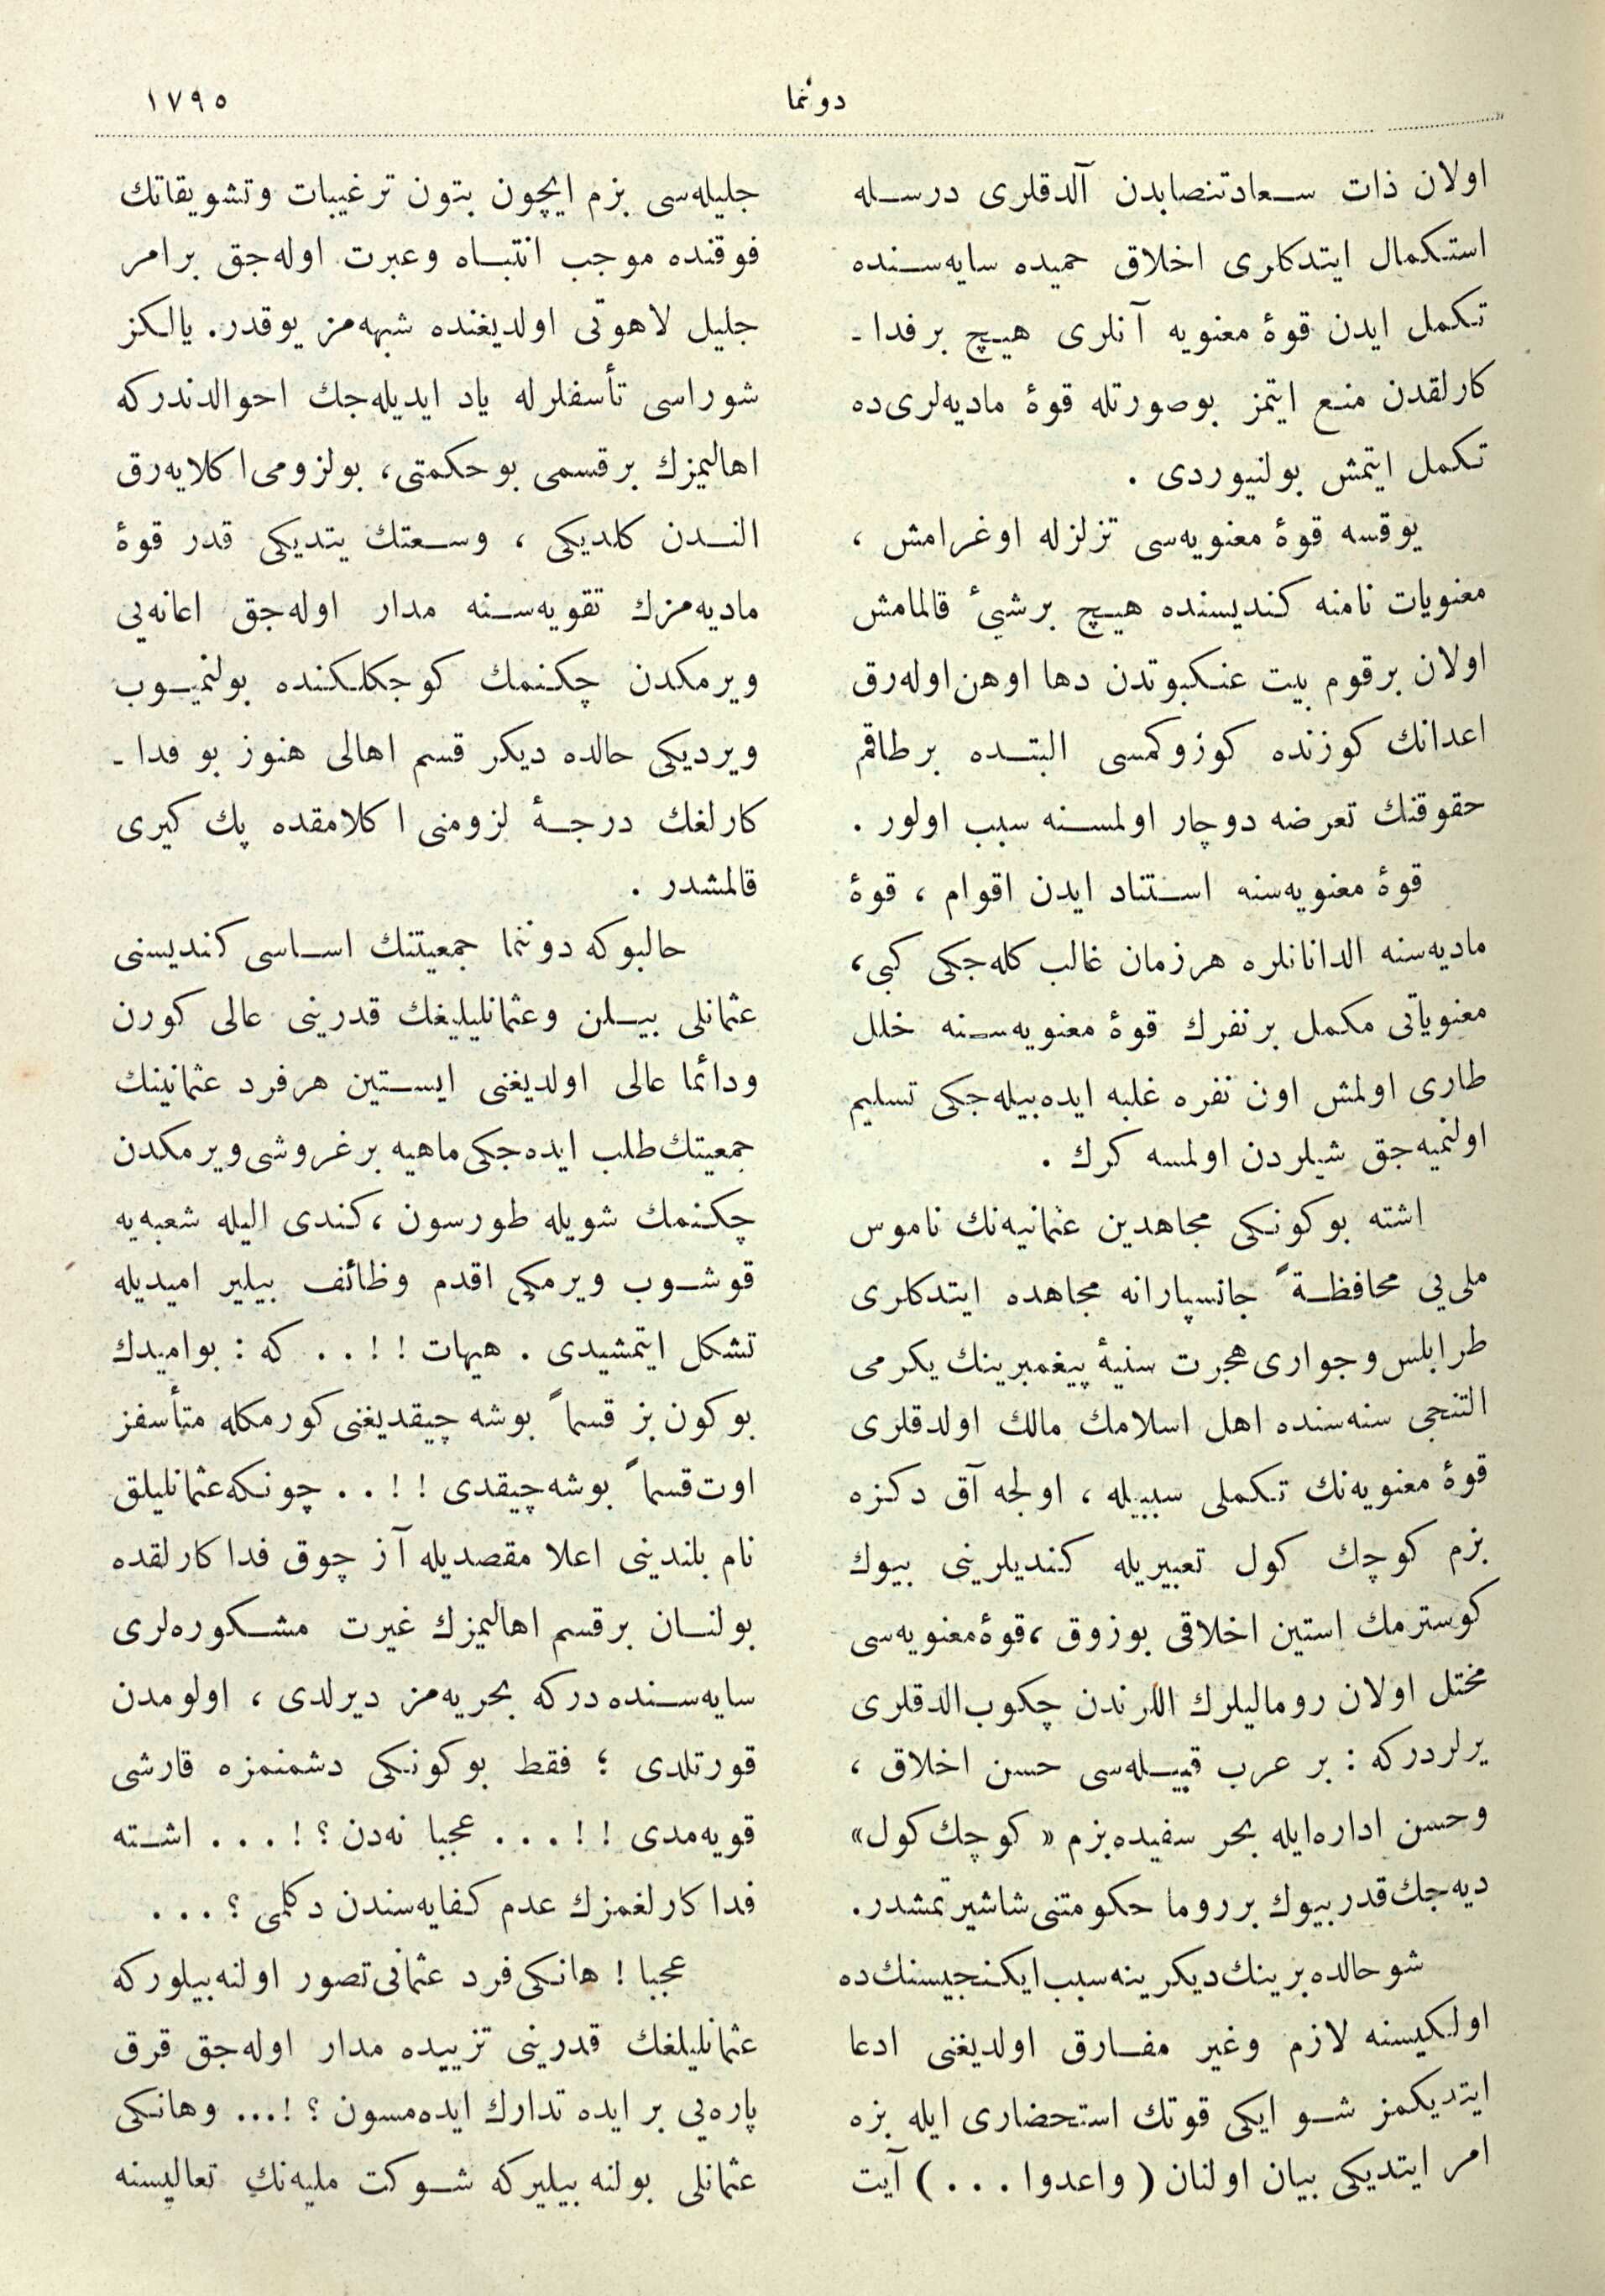 دونما
١٧٩٥
اولان ذات سعادتنصابدن آلدقلری درسله
استكمال ایتدكلری اخلاق حمیده سایه‌سنده
تكمل ایدن قوۀ معنویه آنلری هیچ برفدا ـ
كارلقدن منع ایتمز بوصورتله قوۀ مادیه‌لری‌ده
تكمل ایتمش بولنیوردی .
یوقسه قوۀ معنویه‌سی تزلزله اوغرامش ،
معنویات نامنه كندیسنده هیچ برشیٔ قالمامش
اولان برقوم بیت عنكبوتدن دها اوهن اوله‌رق
اعدانك كوزنده كوزوكمسی البتده برطاقم
حقوقنك تعرضه دوچار اولمسنه سبب اولور .
قوۀ معنویه‌سنه استناد ایدن اقوام ، قوۀ
مادیه‌سنه الدانانلره هرزمان غالب كله‌جكی كبی،
معنویاتی مكمل برنفرك قوۀ معنویه‌سنه خلل
طاری اولمش اون نفره غلبه ایده‌بیله‌جكی تسلیم
اولنمیه‌جق شیلردن اولمسه كرك .
اشته بوكونكی مجاهدین عثمانیه‌نك ناموس
ملی‌یی محافظةً جانسپارانه مجاهده ایتدكلری
طرابلس وجواری هجرت سنیۀ پیغمبرینك یكرمی
التنجی سنه‌سنده اهل اسلامك مالك اولدقلری
قوۀ معنویه‌نك تكملی سببیله ، اولجه آق دكزه
بزم كوچك كول تعبیریله كندیلرینی بیوك
كوسترمك استین اخلاقی بوزوق ، قوۀ معنویه‌سی
مختل اولان رومالیلرك اللرندن چكوب الدقلری
یرلردركه : بر عرب قبیله‌سی حسن اخلاق ،
وحسن اداره‌ایله بحر سفیده بزم « كوچك كول»
دیه‌جك قدر بیوك برروما حكومتنی شاشیرتمشدر.
شو حالده برینك دیكرینه سبب ایكنجیسنك‌ده
اولكیسنه لازم وغیر مفارق اولدیغنی ادعا
ایتدیكمز شو ایكی قوتك استحضاری ایله بزه
امر ایتدیكی بیان اولنان ( واعدوا . . . ) آیت
جلیله‌سی بزم ایچون بتون ترغیبات وتشویقاتك
فوقنده موجب انتباه وعبرت اوله‌جق برامر
جلیل لاهوتی اولدیغنده شبهه‌مز یوقدر. یالكز
شوراسی تأسفلرله یاد ایدیله‌جك احوالدندركه
اهالیمزك برقسمی بوحكمتی ، بولزومی اكلایه‌رق
الندن كلدیكی ، وسعتك یتدیكی قدر قوۀ
مادیه‌مزك تقویه‌سنه مدار اوله‌جق اعانه‌یی
ویرمكدن چكنمك كوجكلكنده بولنمیوب
ویردیكی حالده دیكر قسم اهالی هنوز بو فدا ـ
كارلغك درجۀ لزومنی اكلامقده پك كیری
قالمشدر .
حالبوكه دوننما جمعیتنك اساسی كندیسنی
عثمانلی بیلن وعثمانلیلیغك قدرینی عالی كورن
ودائما عالی اولدیغنی ایستین هرفرد عثمانینك
جمعیتك طلب ایده‌جكی ماهیه برغروشی ویرمكدن
چكنمك شویله طورسون ، كندی الیله شعبه‌یه
قوشوب ویرمكی اقدم وظائف بیلیر امیدیله
تشكل ایتمشیدی . هیهات ! ! . . كه : بوامیدك
بوكون بز قسماً بوشه چیقدیغنی كورمكله متأسفز
اوت قسماً بوشه چیقدی ! ! . . چونكه عثمانلیلق
نام بلندینی اعلا مقصدیله آز چوق فداكارلقده
بولنان برقسم اهالیمزك غیرت مشكوره‌لری
سایه‌سنده دركه بحریه‌مز دیرلدی ، اولومدن
قورتلدی ؛ فقط بوكونكی دشمنمزه قارشی
قویه‌مدی ! ! . . . عجبا نه‌دن ؟ ! . . . اشته
فداكارلغمزك عدم كفایه‌سندن دكلمی ؟ . . .
عجبا ! هانكی فرد عثمانی تصور اولنه بیلوركه
عثمانلیلغك قدرینی تزییده مدار اوله‌جق قرق
پاره‌یی بر ایده تدارك ایده‌مسون ؟ !... وهانكی
عثمانلی بولنه بیلیركه شوكت ملیه‌نك تعالیسنه